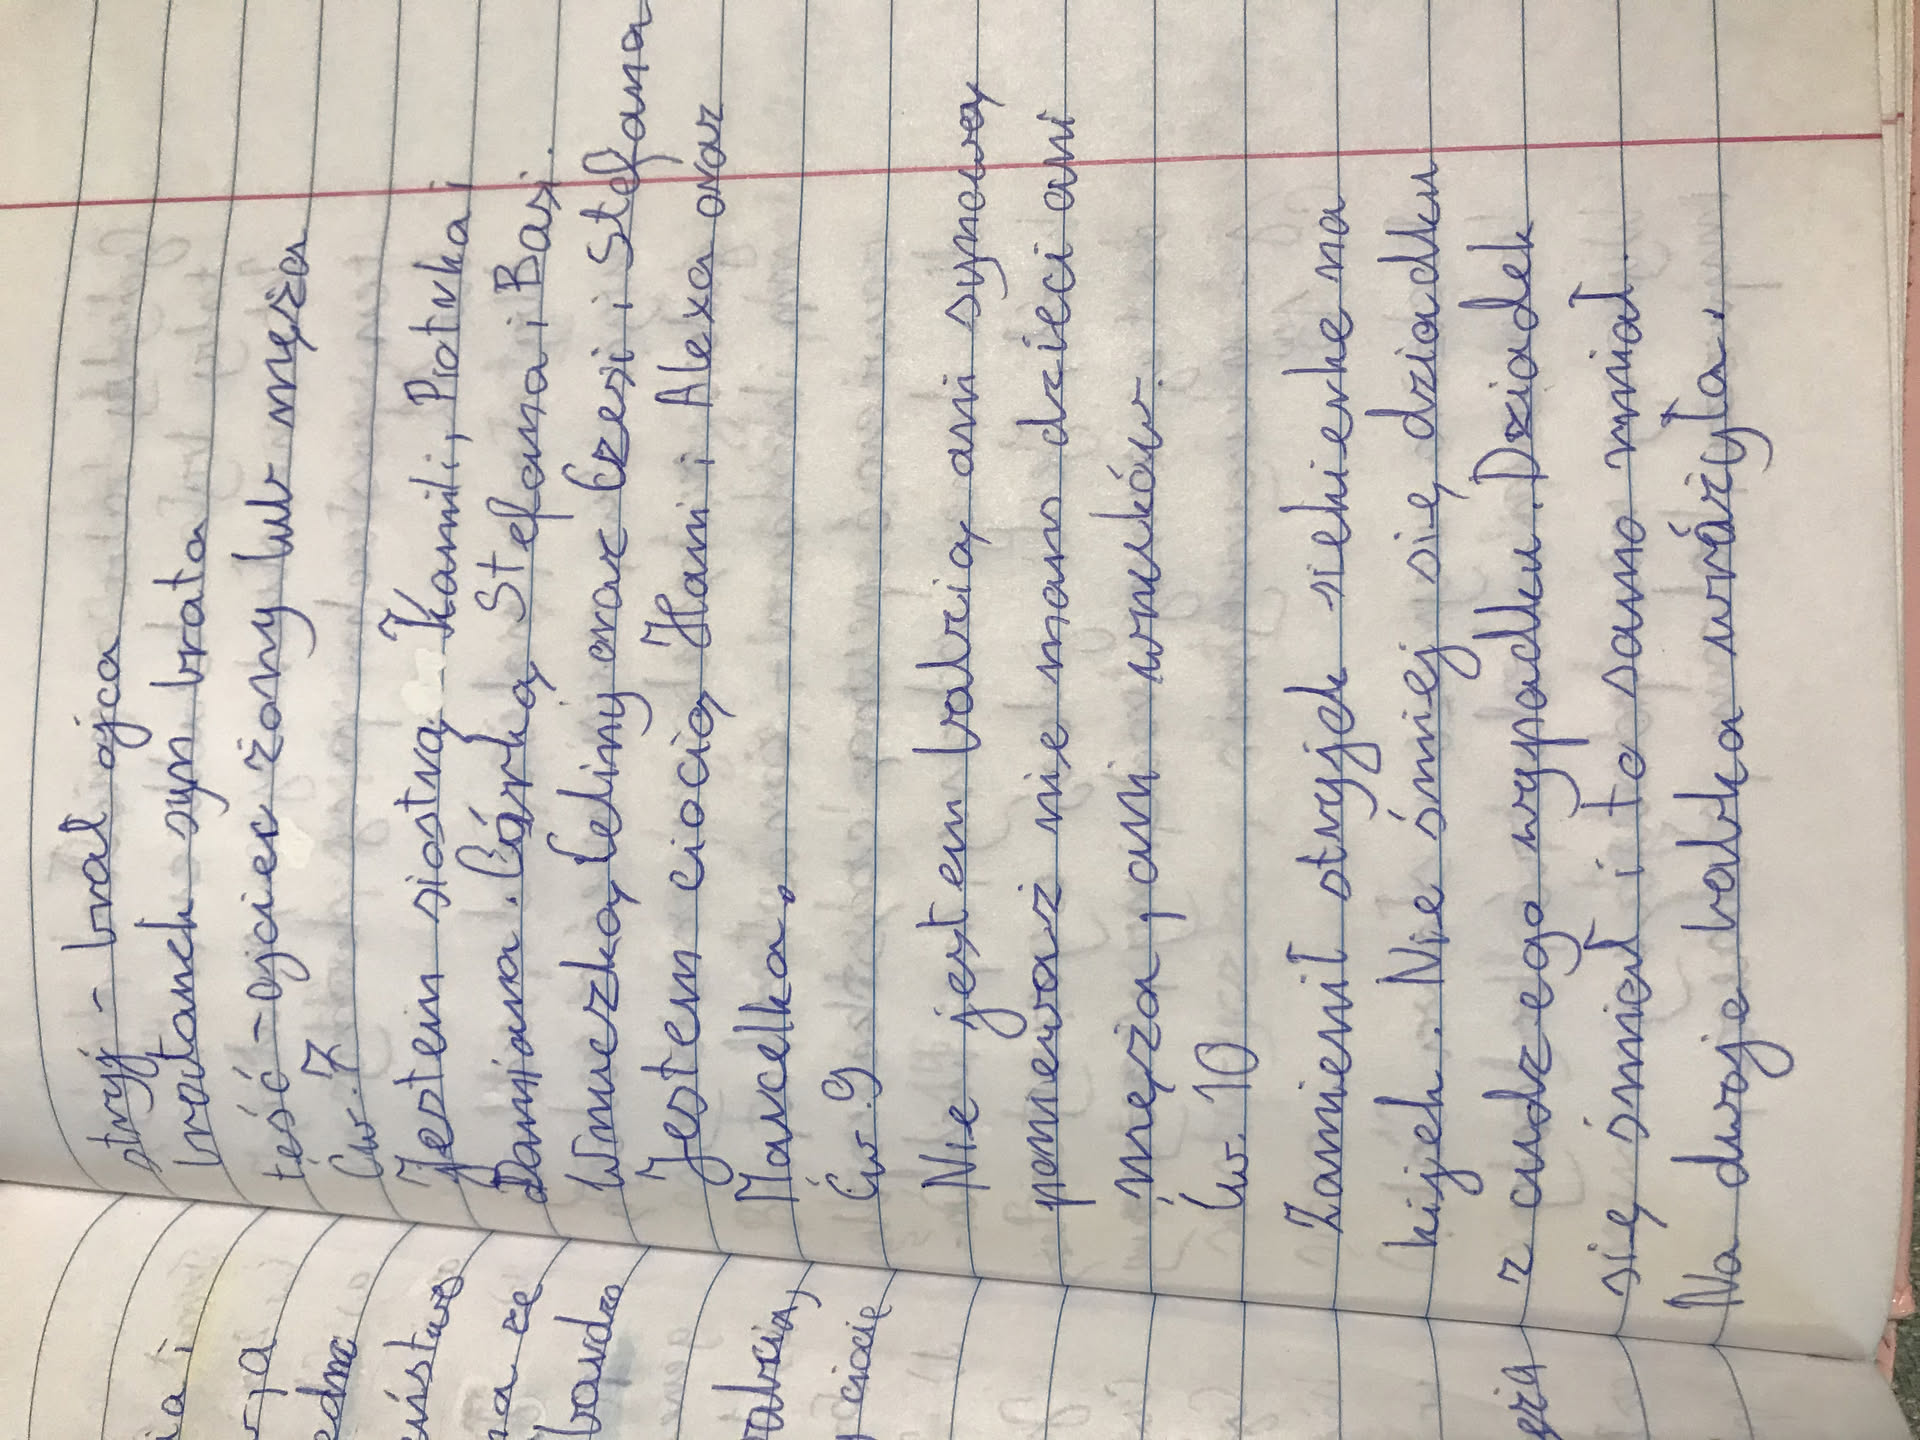 stryj - brat ojca
bratanek - syn brata
teść - ojciec żony lub męża
Ćw. 7
Jestem siostrą Kamili, Piotrka i
Damiana. Córką Stefana i Basi.
Wnuczką Celiny oraz Czesi i Stefana
Jestem ciocią Hani i Alexa oraz
Marcelka.
Ćw. 9
Nie jestem babcią ani synową
ponieważ nie mam dzieci ani
męża, ani wnuków.
Ćw. 10
Zamienił stryjek siekierke na
kijek. Nie śmiej się dziadku
z cudzego wypadku. Dziadek
się śmiał i to samo miał.
Na dwoje babka wróżyła.